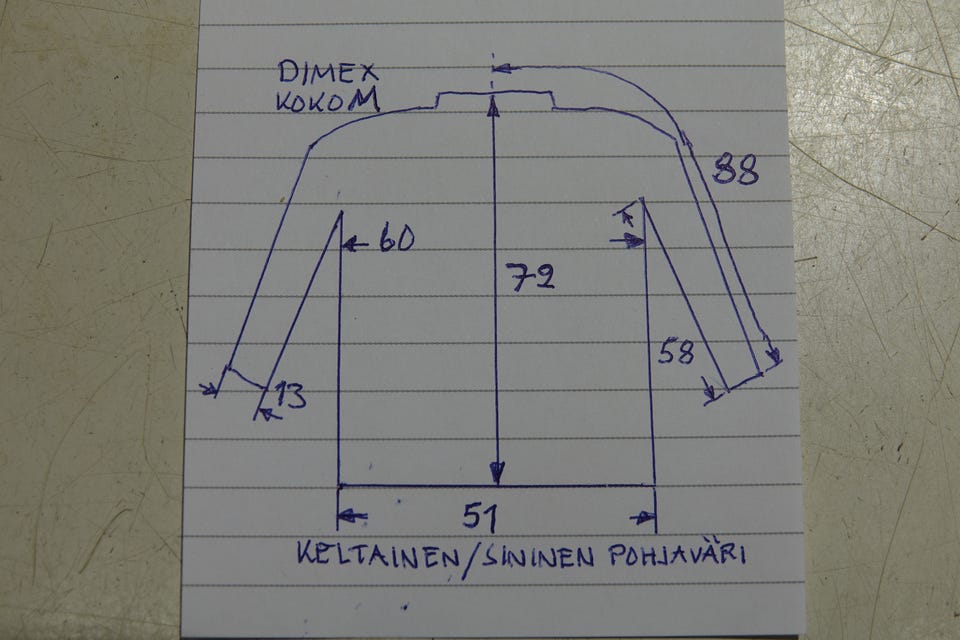 DIMEX
KOKO M
88
60
72
58
13
51
KELTAINEN/SININEN POHJAVÄRI